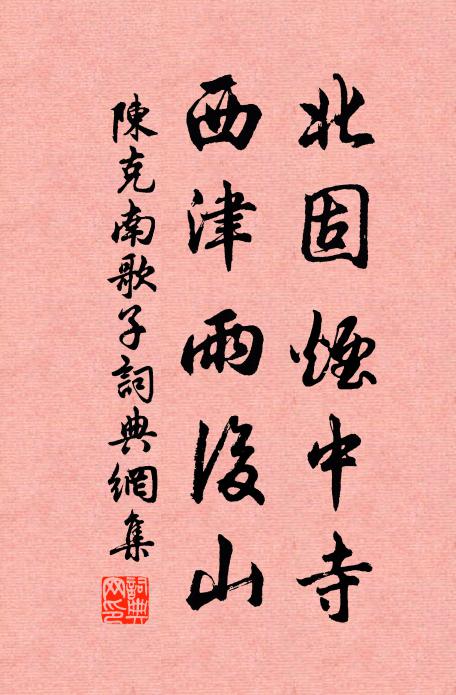 北固煙中寺
西津雨後山
陳克南歌子詞典網集
詞典网印